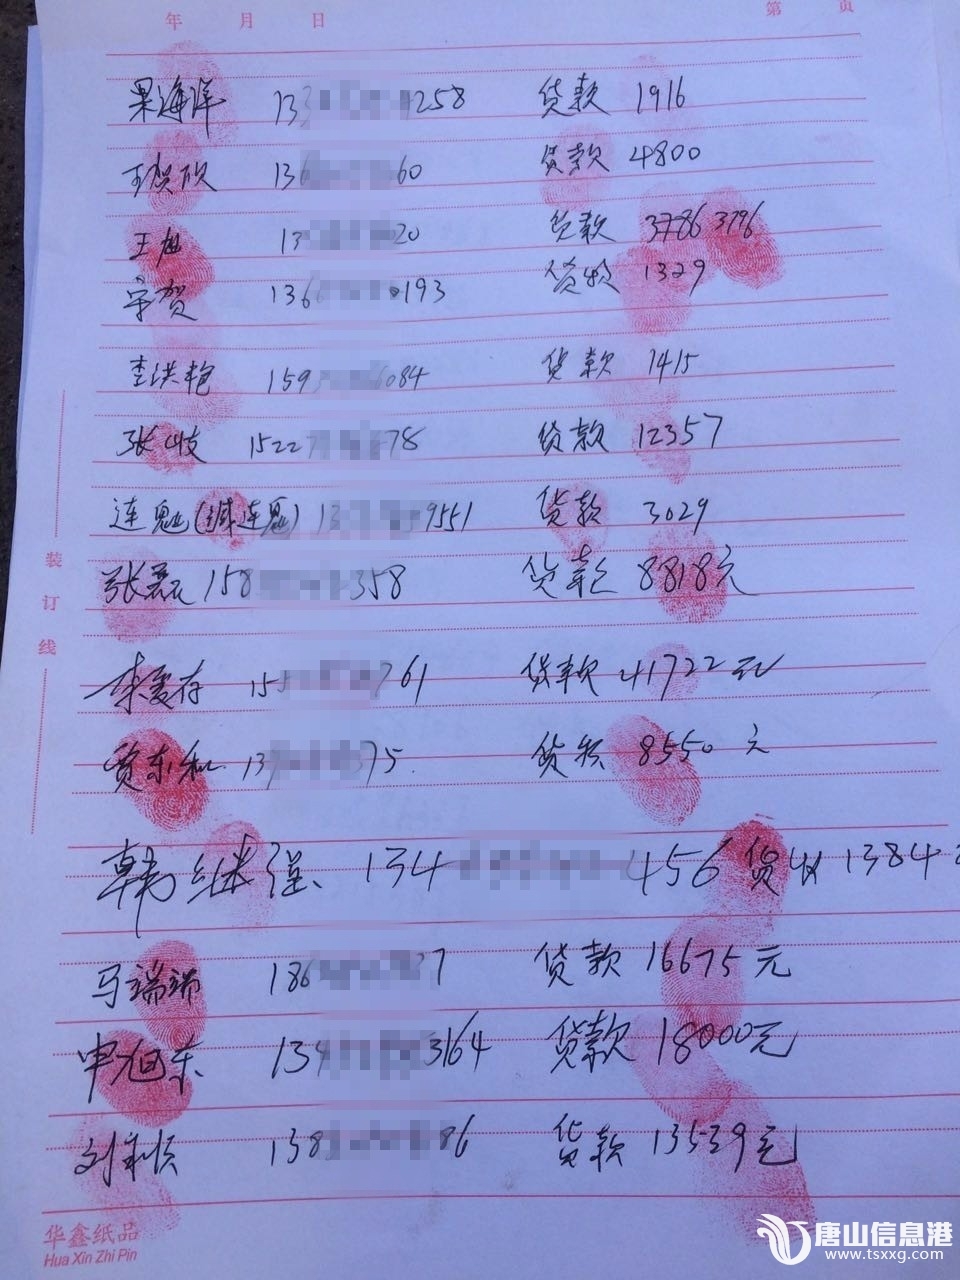 年 月 日 第 页
果海洋 13 258 货款 1916
王贺欣 136 60 货款 4800
王旭 13 20 货款 3786 3786
宋贺 136 0193 货款 1329
李洪艳 159 6084 货款 1415
张 1522 78 货款 12357
连魁(臧连魁) 13 9551 货款 3029
张磊 158 358 货款 8818元
李爱存 155 761 货款 41722元
贾东和 139 75 货款 8550元
韩继强 134 456 货款 1384
马瑞瑞 186 7 货款 16675元
申旭东 134 3164 货款 18000元
刘利顺 138 86 货款 13539元
装订线
华鑫纸品
Hua Xin Zhi Pin
唐山信息港
www.tsxxg.com